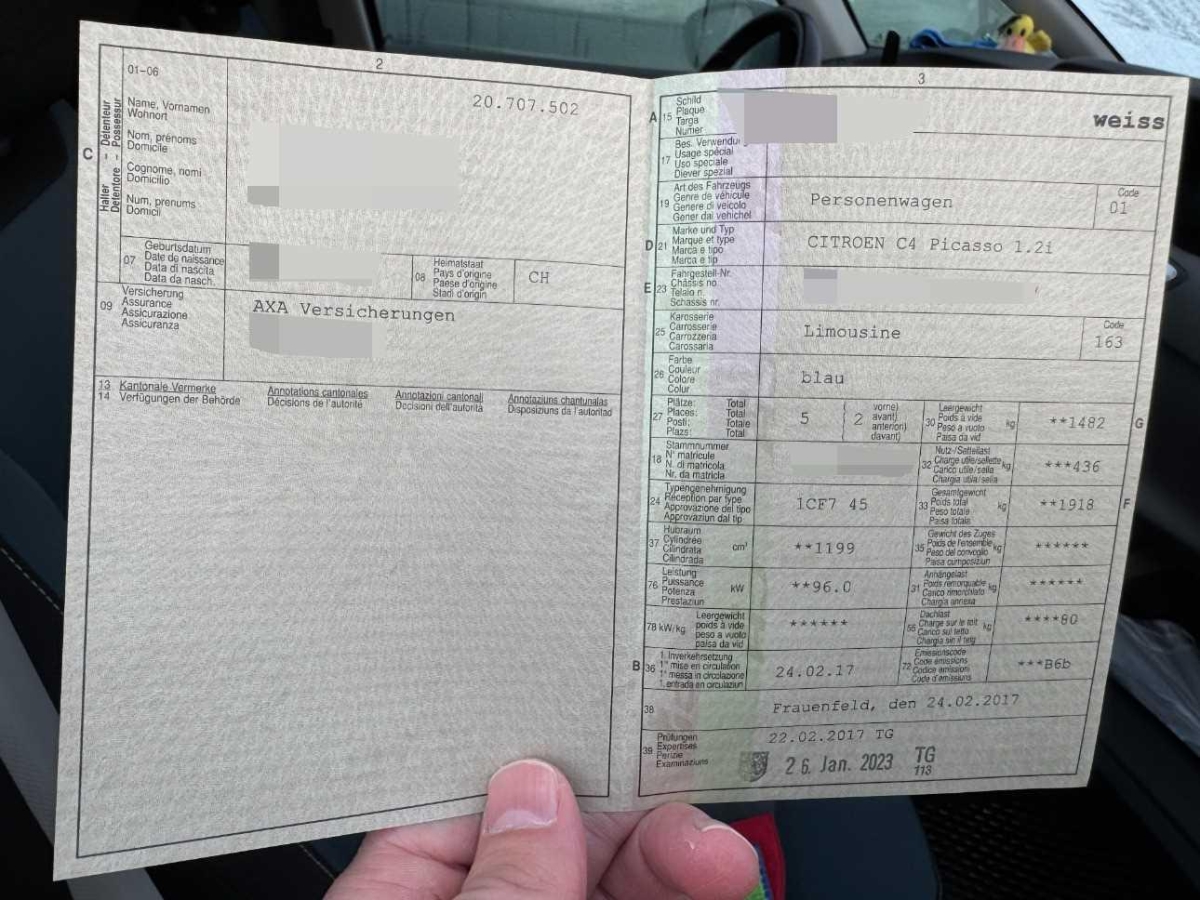 2
01-06
20.707.502
C
Halter - Détenteur
Detentore - Possessur
Name, Vornamen
Wohnort
Nom, prénoms
Domicile
Cognome, nomi
Domicilio
Num, prenums
Domicil
07
Geburtsdatum
Date de naissance
Data di nascita
Data da nasch.
08
Heimatstaat
Pays d'origine
Paese d'origine
Stadi d'origin
CH
09
Versicherung
Assurance
Assicurazione
Assicuranza
AXA Versicherungen
13
14
Kantonale Vermerke
Verfügungen der Behörde
Annotations cantonales
Décisions de l'autorité
Annotazioni cantonali
Decisioni dell'autorità
Annotaziuns chantunalas
Disposiziuns da l'autoritad
3
A 15
Schild
Plaque
Targa
Numer
weiss
17
Bes. Verwendu
Usage spécial
Uso speciale
Diever spezial
19
Art des Fahrzeugs
Genre de véhicule
Genere di veicolo
Gener dal vehichel
Personenwagen
Code
01
D 21
Marke und Typ
Marque et type
Marca e tipo
Marca e tip
CITROEN C4 Picasso 1.2i
E 23
Fahrgestell-Nr.
Châssis no
Telaio n.
Schassis nr.
25
Karosserie
Carrosserie
Carrozzeria
Carossaria
Limousine
Code
163
26
Farbe
Couleur
Colore
Colur
blau
27
Plätze: Total
Places: Total
Posti: Totale
Plazs: Total
5
2
vorne)
avant)
anteriori)
davant)
30
Leergewicht
Poids à vide
Peso a vuoto
Paisa da vid
kg
**1482
G
18
Stammnummer
N° matricule
N. di matricola
Nr. da matricla
32
Nutz-/Sattellast
Charge utile/sellette
Carico utile/sella
Chargia utila/sella
kg
***436
24
Typengenehmigung
Réception par type
Approvazione del tipo
Approvaziun dal tip
1CF7 45
33
Gesamtgewicht
Poids total
Peso totale
Paisa totala
kg
**1918
F
37
Hubraum
Cylindrée
Cilindrata
Cilindrada
cm³
**1199
35
Gewicht des Zuges
Poids de l'ensemble
Peso del convoglio
Paisa cumposiziun
kg
******
76
Leistung
Puissance
Potenza
Prestaziun
kW
**96.0
31
Anhängelast
Poids remorquable
Carico rimorchiato
Chargia annexa
kg
******
78 kW/kg
Leergewicht
poids à vide
peso a vuoto
paisa da vid
******
55
Dachlast
Charge sur le toit
Carico sul tetto
Chargia sin il tetg
kg
****80
B 36
1. Inverkehrsetzung
1re mise en circulation
1a messa in circolazione
1. entrada en circulaziun
24.02.17
72
Emissionscode
Code émissions
Codice emissioni
Code d'emissiuns
***B6b
38
Frauenfeld, den 24.02.2017
39
Prüfungen
Expertises
Perizie
Examinaziuns
22.02.2017 TG
26. Jan. 2023
TG
113